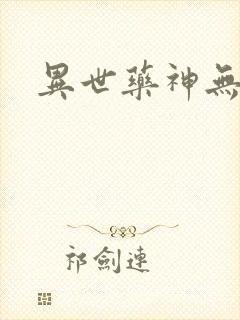 異世藥神無
祁劍連